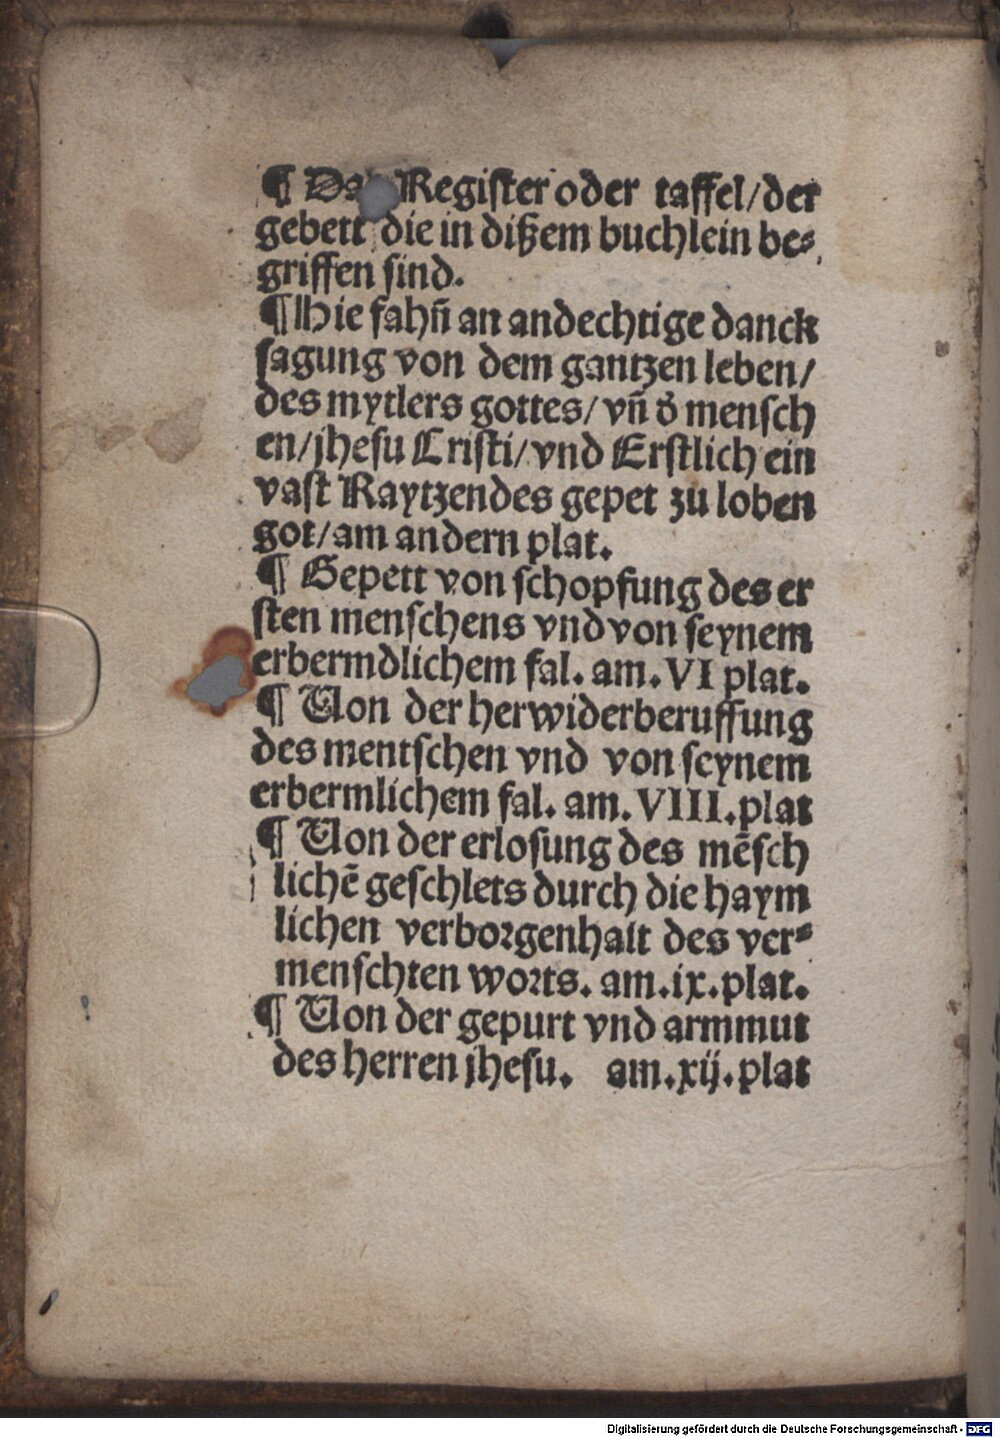 ¶ Das Register oder taffel/der
gebett die in dißem buchlein be⸗
griffen sind.
¶Hie fahn̄ an andechtige danck
sagung von dem gantzen leben/
des mytlers gottes/vn̄ d̓ mensch
en/jhesu Cristi/vnd Erstlich ein
vast Raytzendes gepet zu loben
got/am andern plat.
¶ Gepett von schopfung des er
sten menschens vnd von seynem
erbermdlichem fal. am. VI plat.
¶ Von der herwiderberuffung
des mentschen vnd von seynem
erbermlichem fal. am. VIII. plat
¶ Von der erlosung des mēsch
lichē geschlets durch die haym
lichen verborgenhait des ver⸗
menschten worts. am.ix.plat.
¶ Von der gepurt vnd armmut
des herren jhesu. am.xij.plat
Digitalisierung gefördert durch die Deutsche Forschungsgemeinschaft - DFG